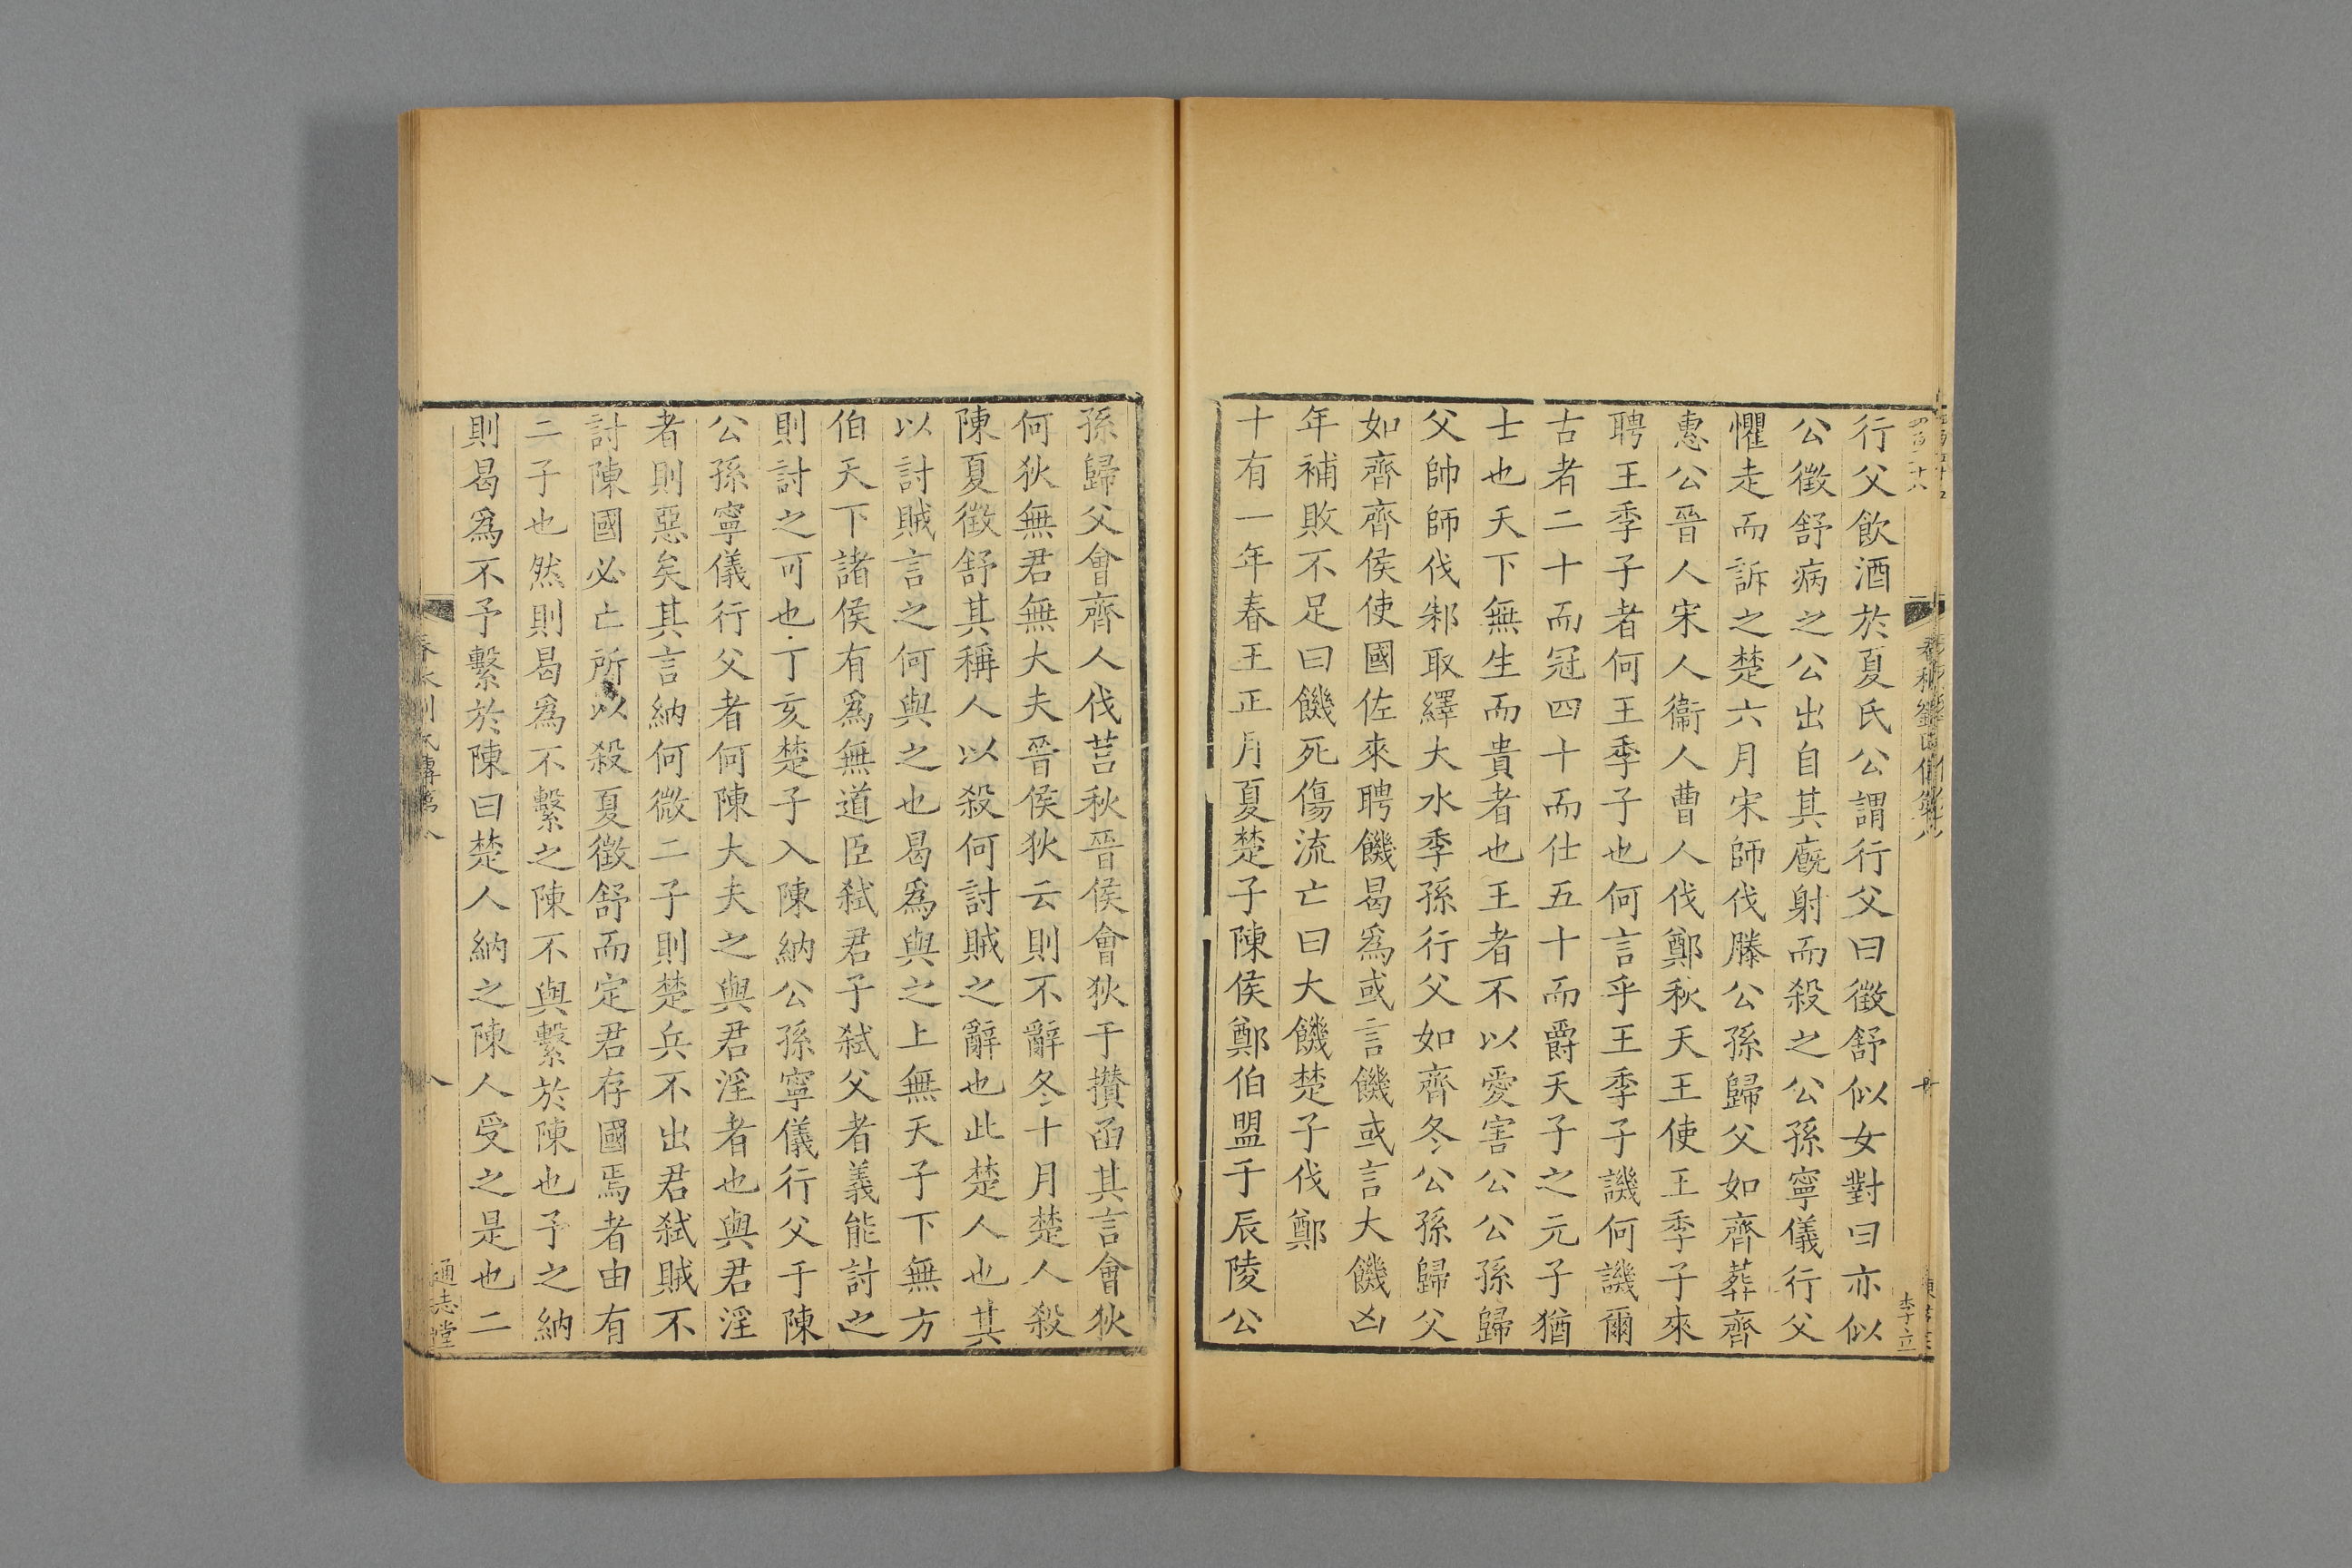 行父飲酒於夏氏公謂行父曰徵舒似女對曰亦似
公徵舒病之公出自其廐射而殺之公孫寧儀行父
懼走而訴之楚六月宋師伐滕公孫歸父如齊葬齊
惠公晉人宋人衞人曹人伐鄭秋天王使王季子來
聘王季子者何王季子也何言乎王季子譏何譏爾
古者二十而冠四十而仕五十而爵天子之元子猶
士也天下無生而貴者也王者不以愛害公公孫歸
父帥師伐邾取繹大水季孫行父如齊冬公孫歸父
如齊齊侯使國佐來聘饑曷爲或言饑或言大饑凶
年補敗不足曰饑死傷流亡曰大饑楚子伐鄭
十有一年春王正月夏楚子陳侯鄭伯盟于辰陵公
李立
孫歸父會齊人伐莒秋晉侯會狄于攢函其言會狄
何狄無君無大夫晉侯狄云則不辭冬十月楚人殺
陳夏徵舒其稱人以殺何討賊之辭也此楚人也其
以討賊言之何與之也曷爲與之上無天子下無方
伯天下諸侯有爲無道臣弒君子弒父者義能討之
則討之可也丁亥楚子入陳納公孫寧儀行父于陳
公孫寧儀行父者何陳大夫之與君淫者也與君淫
者則惡矣其言納何微二子則楚兵不出君弒賊不
討陳國必亡所以殺夏徵舒而定君存國焉者由有
二子也然則曷爲不繫之陳不與繫於陳也予之納
則曷爲不予繫於陳曰楚人納之陳人受之是也二
八
通志堂